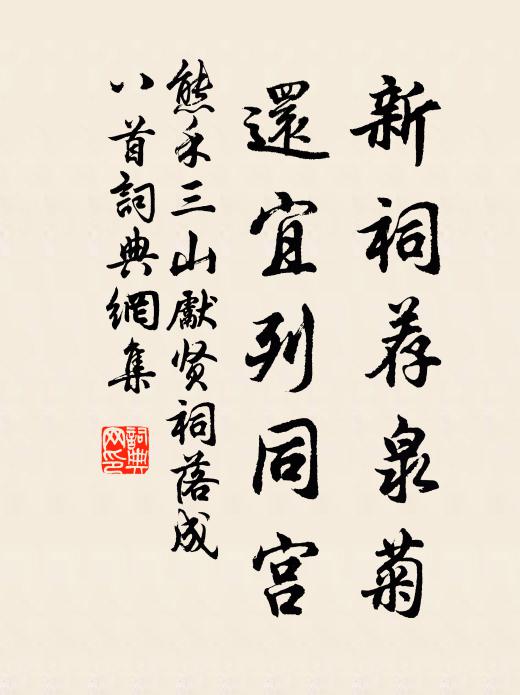 新祠荐泉菊
還宜列同宫
熊禾三山獻贤祠落成
八首詞典網集
詞典网印